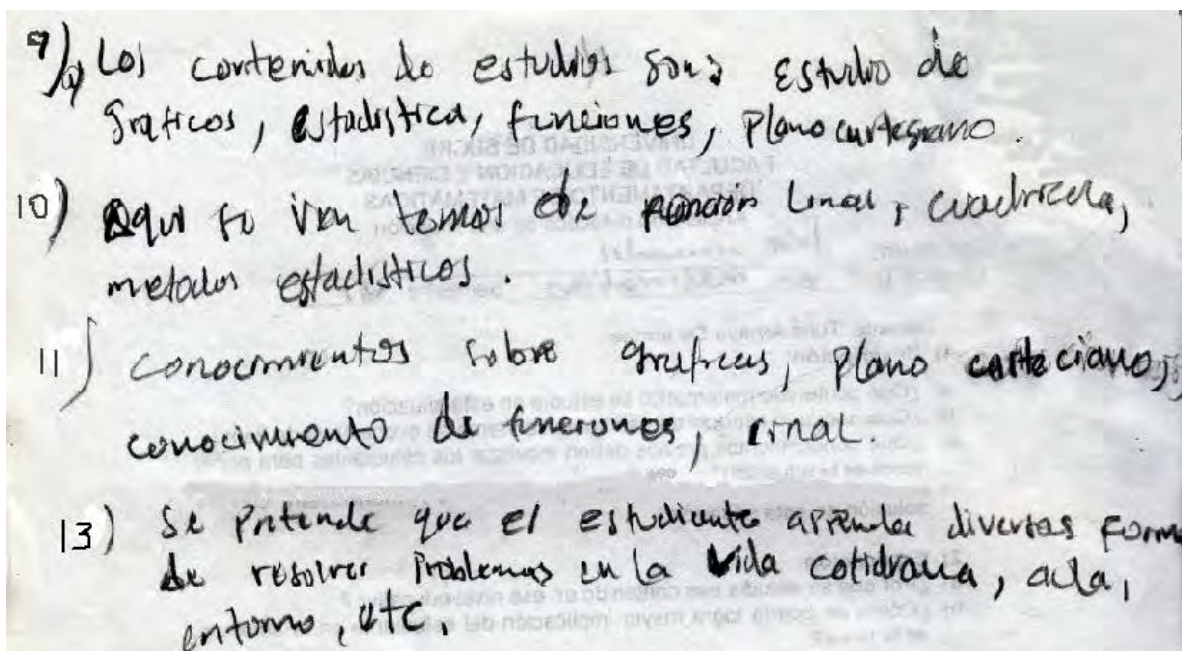 9)a) Los contenidos de estudios son: Estudio de
Graficos, estadistica, funciones, Plano cartesiano.
10) Aqui se ven temas de función Lineal, cuadricula,
metodos estadisticos.
11) conocimientos sobre graficas, plano carteciano,
conocimiento de funciones, linal.
13) Se Pretende que el estudiante aprenda diversas form
de resolver Problemas en la vida cotidiana, aula,
entorno, etc.